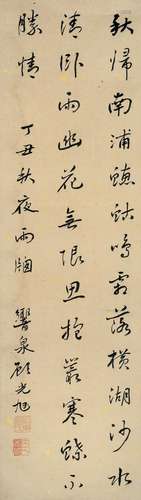 秋歸南浦蟪蛄鳴霜落橫湖沙水
清臥雨幽花無限思抱叢寒蝶不
勝情
丁丑秋夜雨牕 響泉顧光旭